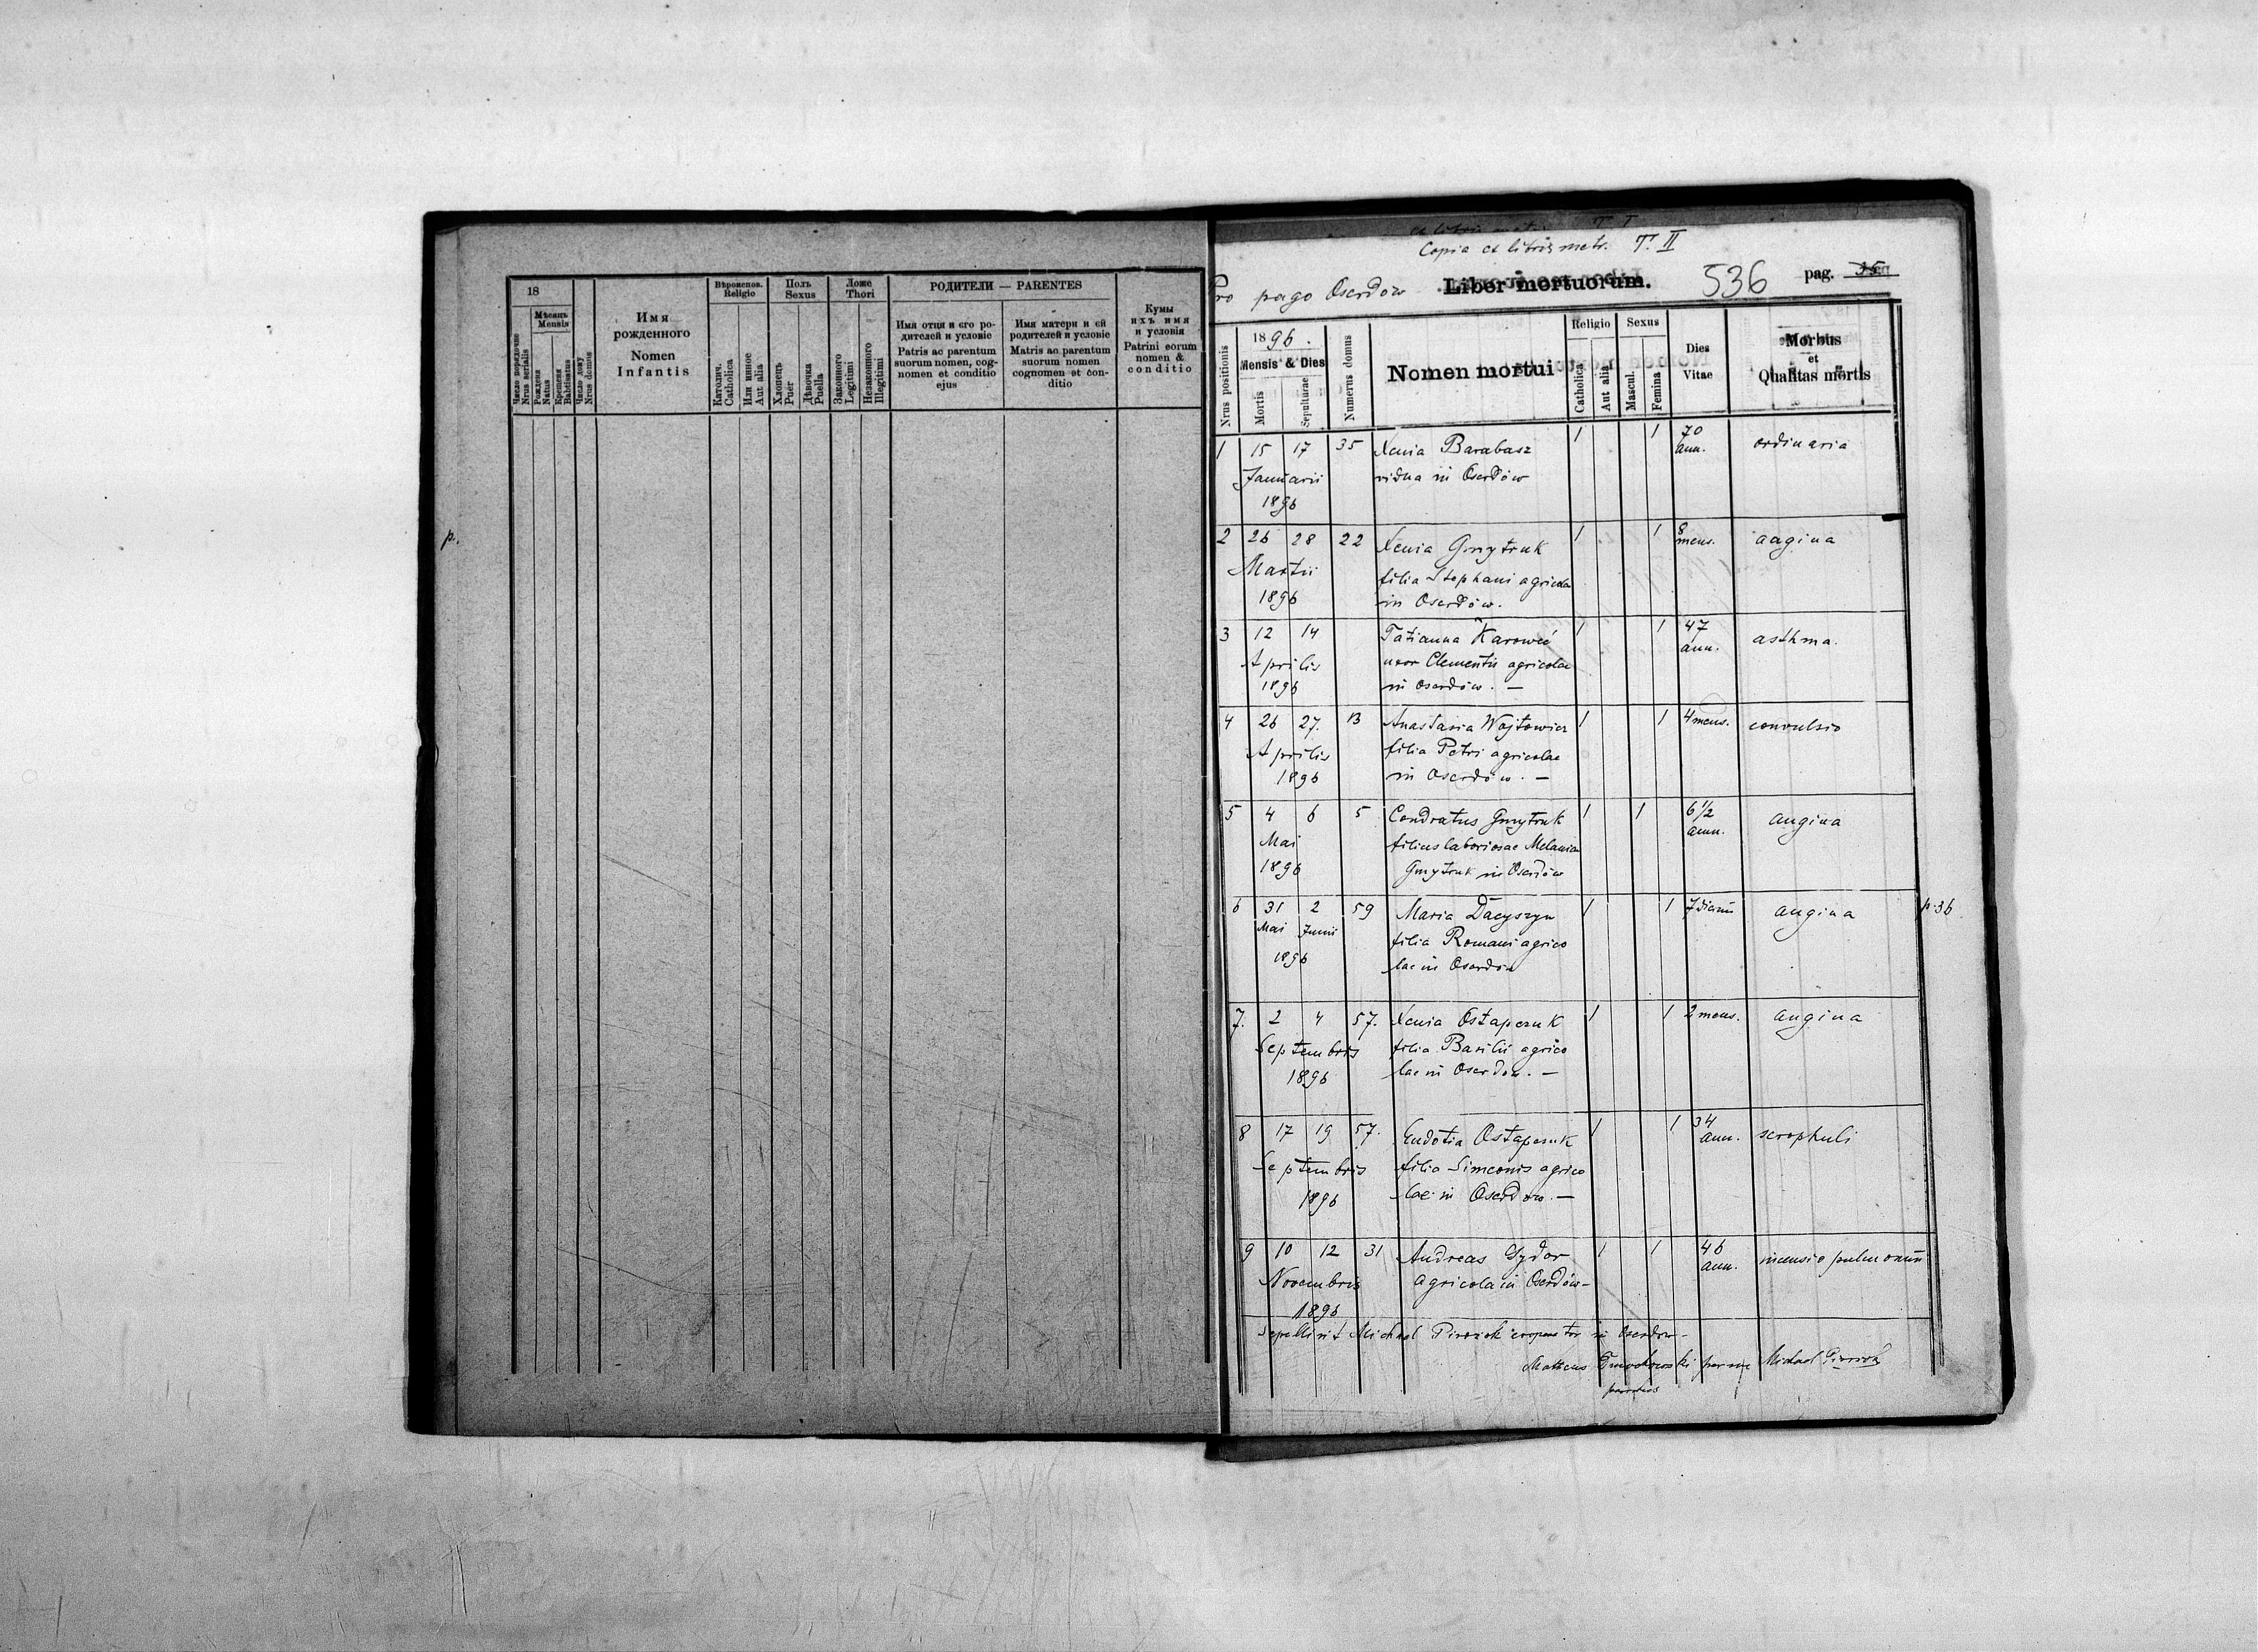 18
Число порядочне
Nrus serialis
Мѣсяць
Mensis
Рождения
Natus
Крещения
Babtisatus
Число дому
Nrus domus
Имя
рожденного
Nomen
Infantis
Вѣроиспов.
Religio
Католич.
Catholica
Или инное
Aut alia
Полъ
Sexus
Хлопець
Puer
Дѣвочка
Puella
Ложе
Thori
Законного
Legitimi
Незаконного
Illegitimi
РОДИТЕЛИ — PARENTES
Имя отця и єго ро-
дителей и условіє
Patris ac parentum
suorum nomen, cog-
nomen et conditio
ejus
Имя матери и єй
родителей и условіє
Matris ac parentum
suorum nomen
cognomen et con-
ditio
Кумы
ихъ имя
и условія
Patrini eorum
nomen &
conditio
p.
Copia ex libris metr. T. II
Pro pago Oserdów Liber mortuorum. 536 pag. 35
Nrus positionis
1896.
Mensis & Dies
Mortis
Sepulturae
Numerus domus
Nomen mortui
Religio
Catholica
Aut alia
Sexus
Mascul.
Femina
Dies
Vitae
Morbus
et
Qualitas mortis
1 15 17 35 Xenia Barabasz 1 1 70 ann. ordinaria
Januarii vidua in Oserdów
1896
2 26 28 22 Xenia Gmytruk 1 1 8 mens. angina
Martii filia Stephani agricola
1896 in Oserdów.
3 12 14 Tatianna Karoweć 1 1 47 ann. asthma.
Aprilis uxor Clementis agricolae
1896 in Oserdów. —
4 26 27. 13 Anastasia Wojtowicz 1 1 4 mens. convulsio
Aprilis filia Petri agricolae
1896 in Oserdów. —
5 4 6 5 Condratus Gmytruk 1 1 6 1/2 ann. angina
Mai filius laboriosae Melaniae
1896 Gmytruk in Oserdów
6 31 2 59 Maria Dacyszyn 1 1 7 dierum angina p. 36
Mai Junii filia Romani agrico
1896 lae in Oserdów
7. 2 4 57. Xenia Ostapczuk 1 1 2 mens. angina
Septembris filia Basilii agrico
1896 lae in Oserdow. —
8 17 19 57. Eudotia Ostapczuk 1 1 34 ann. scrophuli
Septembris filia Simeonis agrico
1896 lae in Oserdow. —
9 10 12 31 Andreas Sydor 1 1 46 ann. incensio pulmonum
Novembris agricola in Oserdów —
1896
Sepellivit Michael cooperator in Oserdow —
Matteus per me Michael
parochus